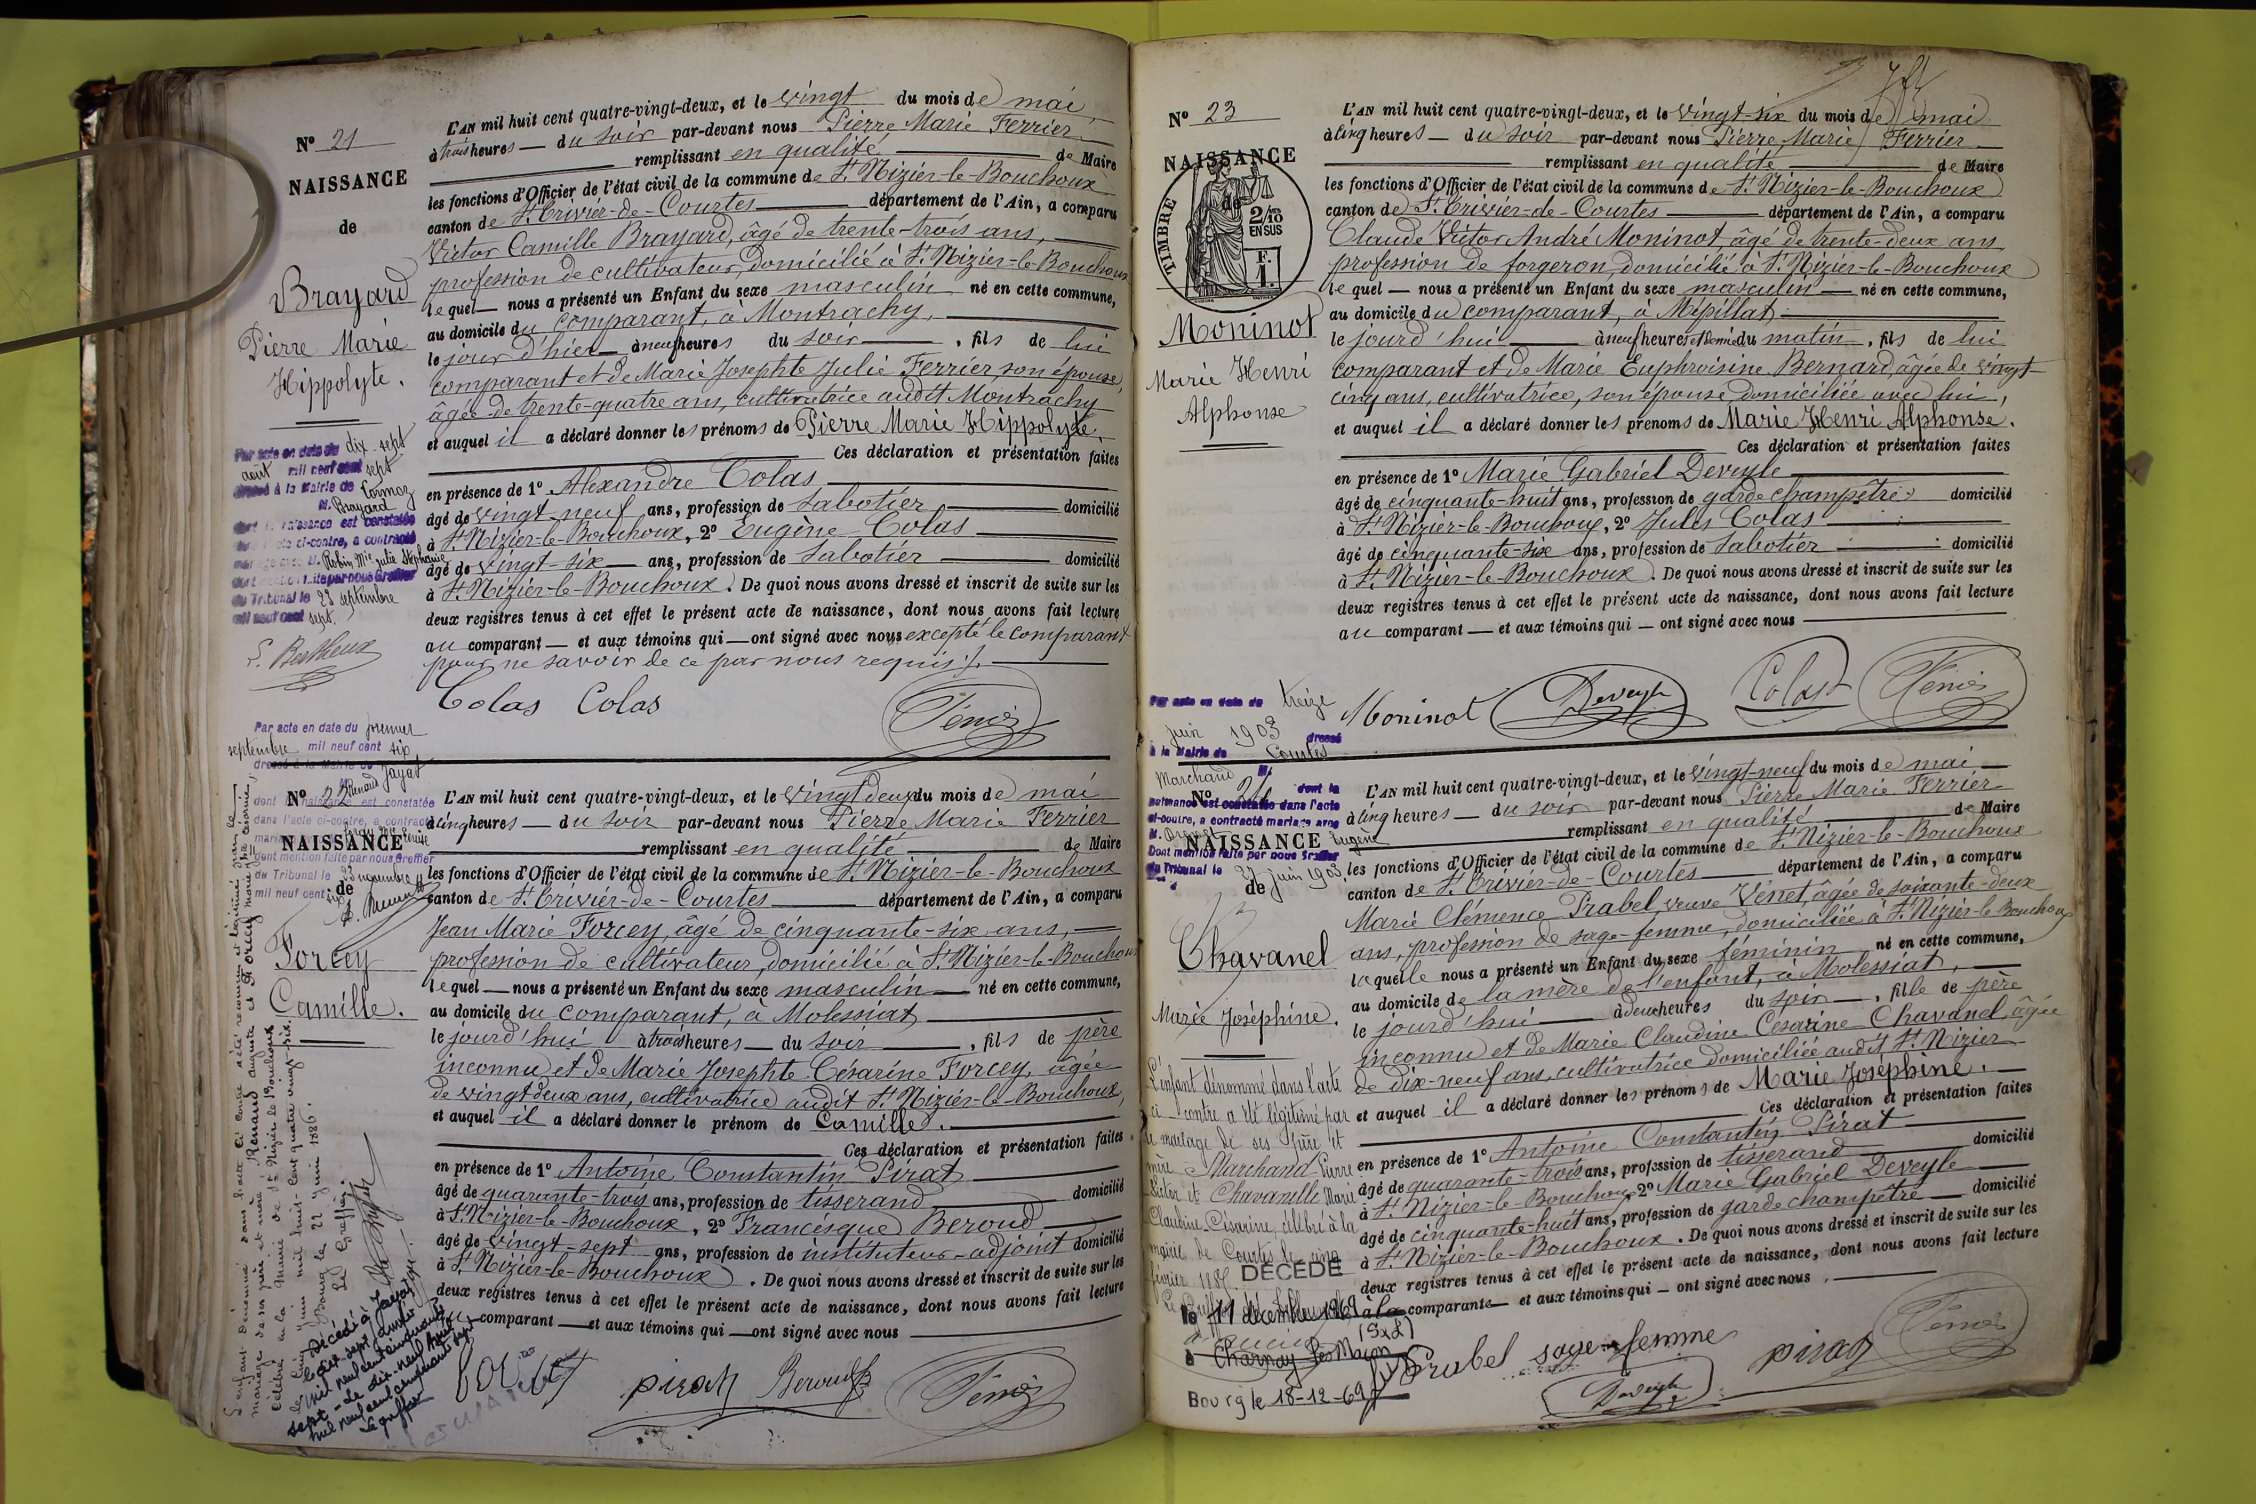 N° 21
NAISSANCE
de
Brayard
Pierre Marie
Hippolyte.
L'AN mil huit cent quatre-vingt-deux, et le vingt du mois de mai
à trois heures — du soir par-devant nous Pierre Marie Ferrier
remplissant en qualité de Maire
les fonctions d'Officier de l'état civil de la commune de St Nizier-le-Bouchoux
canton de St Trivier-de-Courtes département de l'Ain, a comparu
Victor Camille Brayard, âgé de trente-trois ans,
profession de cultivateur, domicilié à St Nizier-le-Bouchoux
lequel — nous a présenté un Enfant du sexe masculin né en cette commune,
au domicile du comparant, à Montrachy,
le jour d'hier à neuf heures du soir, fils de lui
comparant et de Marie Josephte Julie Ferrier, son épouse,
âgée de trente-quatre ans, cultivatrice audit Montrachy
et auquel il a déclaré donner les prénoms de Pierre Marie Hippolyte.
Ces déclaration et présentation faites
en présence de 1° Alexandre Colas
âgé de vingt-neuf ans, profession de sabotier domicilié
à St Nizier-le-Bouchoux, 2° Eugène Colas
âgé de vingt-six ans, profession de sabotier domicilié
à St Nizier-le-Bouchoux. De quoi nous avons dressé et inscrit de suite sur les
deux registres tenus à cet effet le présent acte de naissance, dont nous avons fait lecture
au comparant — et aux témoins qui — ont signé avec nous excepté le comparant
pour ne savoir de ce par nous requis.
Colas Colas
Par acte en date du dix-sept
août mil neuf cent sept
dressé à la Mairie de Cormoz
M. Brayard
dont la naissance est constatée
dans l'acte ci-contre, a contracté
mariage avec M. Robin Mie Julie Stéphanie
dont mention faite par nous Greffier
du Tribunal le 23 septembre
mil neuf cent sept.
Par acte en date du premier
septembre mil neuf cent six
dressé à la Mairie de Jayat
M. Renaud
dont la naissance est constatée
dans l'acte ci-contre, a contracté
dont mention faite par nous Greffier
du Tribunal le 23 novembre
mil neuf cent six
N° 22
NAISSANCE
de
Forcey
Camille.
L'AN mil huit cent quatre-vingt-deux, et le vingt deux du mois de mai
à cinq heures — du soir par-devant nous Pierre Marie Ferrier
remplissant en qualité de Maire
les fonctions d'Officier de l'état civil de la commune de St Nizier-le-Bouchoux
canton de St Trivier-de-Courtes département de l'Ain, a comparu
Jean Marie Forcey, âgé de cinquante-six ans,
profession de cultivateur, domicilié à St Nizier-le-Bouchoux
lequel — nous a présenté un Enfant du sexe masculin né en cette commune,
au domicile du comparant, à Molessiat
le jourd'hui à trois heures — du soir, fils de père
inconnu et de Marie Josephte Césarine Forcey, âgée
de vingt deux ans, cultivatrice audit St Nizier-le-Bouchoux,
et auquel il a déclaré donner le prénom de Camille.
Ces déclaration et présentation faites
en présence de 1° Antoine Constantin Pirat
âgé de quarante-trois ans, profession de tisserand domicilié
à St Nizier-le-Bouchoux, 2° Francisque Beroud
âgé de vingt-sept ans, profession de instituteur-adjoint domicilié
à St Nizier-le-Bouchoux. De quoi nous avons dressé et inscrit de suite sur les
deux registres tenus à cet effet le présent acte de naissance, dont nous avons fait lecture
au comparant — et aux témoins qui — ont signé avec nous
pirat Beroud
L'enfant dénommé dans l'acte ci contre a été reconnu et légitimé par le
mariage de ses père et mère, Renaud Auguste et Forcey
célébré à la Mairie de St Nizier le Bouchoux
le cinq juin mil huit-cent quatre vingt-six.
Bourg le 22 juin 1886.
Le Greffier,
Décédé à Jayat
le dix sept
mil neuf cent cinquante
sept - Le dix-neuf
mil neuf cent cinquante sept
Le greffier
N° 23
NAISSANCE
de
TIMBRE
2/10 EN SUS
F. 1.
Moninot
Marie Henri
Alphonse
L'AN mil huit cent quatre-vingt-deux, et le vingt-six du mois de mai
à cinq heures — du soir par-devant nous Pierre Marie Ferrier
remplissant en qualité de Maire
les fonctions d'Officier de l'état civil de la commune de St Nizier-le-Bouchoux
canton de St Trivier-de-Courtes département de l'Ain, a comparu
Claude Victor André Moninot, âgé de trente-deux ans
profession de forgeron, domicilié à St Nizier-le-Bouchoux
lequel — nous a présenté un Enfant du sexe masculin — né en cette commune,
au domicile du comparant, à Mépillat
le jourd'hui à neuf heures et demie du matin, fils de lui
comparant et de Marie Euphroisine Bernard, âgée de vingt-
cinq ans, cultivatrice, son épouse, domiciliée avec lui,
et auquel il a déclaré donner les prénoms de Marie Henri Alphonse.
Ces déclaration et présentation faites
en présence de 1° Marie Gabriel Deveyle
âgé de cinquante-huit ans, profession de garde champêtre domicilié
à St Nizier-le-Bouchoux, 2° Jules Colas
âgé de cinquante-six ans, profession de sabotier domicilié
à St Nizier-le-Bouchoux. De quoi nous avons dressé et inscrit de suite sur les
deux registres tenus à cet effet le présent acte de naissance, dont nous avons fait lecture
au comparant — et aux témoins qui — ont signé avec nous
Moninot Deveyle Colas
Par acte en date du treize
juin 1903 dressé
à la Mairie de Courtes
Marchand M.
dont la
naissance est constatée dans l'acte
ci-contre, a contracté mariage avec
M.
Eugène
Dont mention faite par nous Greffier
du Tribunal le 27 juin 1903
N° 24
NAISSANCE
de
Chavanel
Marie Joséphine.
L'AN mil huit cent quatre-vingt-deux, et le vingt-neuf du mois de mai
à cinq heures — du soir par-devant nous Pierre Marie Ferrier
remplissant en qualité de Maire
les fonctions d'Officier de l'état civil de la commune de St Nizier-le-Bouchoux
canton de St Trivier-de-Courtes département de l'Ain, a comparu
Marie Clémence Prabel, veuve Vénet, âgée de soixante-deux
ans, profession de sage-femme, domiciliée à St Nizier-le-Bouchoux
laquelle nous a présenté un Enfant du sexe féminin né en cette commune,
au domicile de la mère de l'enfant, à Molessiat,
le jourd'hui à deux heures du soir, fille de père
inconnu et de Marie Claudine Césarine Chavanel, âgée
de dix-neuf ans, cultivatrice domiciliée audit St Nizier
et auquel il a déclaré donner les prénoms de Marie Joséphine.
Ces déclaration et présentation faites
en présence de 1° Antoine Constantin Pirat
âgé de quarante-trois ans, profession de tisserand domicilié
à St Nizier-le-Bouchoux, 2° Marie Gabriel Deveyle
âgé de cinquante-huit ans, profession de garde champêtre domicilié
à St Nizier-le-Bouchoux. De quoi nous avons dressé et inscrit de suite sur les
deux registres tenus à cet effet le présent acte de naissance, dont nous avons fait lecture
à la comparante — et aux témoins qui — ont signé avec nous
Prabel sage-femme pirat
Deveyle
L'enfant dénommé dans l'acte
ci-contre a été légitimé par
le mariage de ses père et
mère Marchand Pierre
Victor et Chavanelle Marie
Claudine Césarine, célébré à la
mairie de Courtes le cinq
février 1885
DÉCÉDÉ
le 11 décembre 1969
(S&L)
à Charnay les Macon
Bourg le 18-12-69